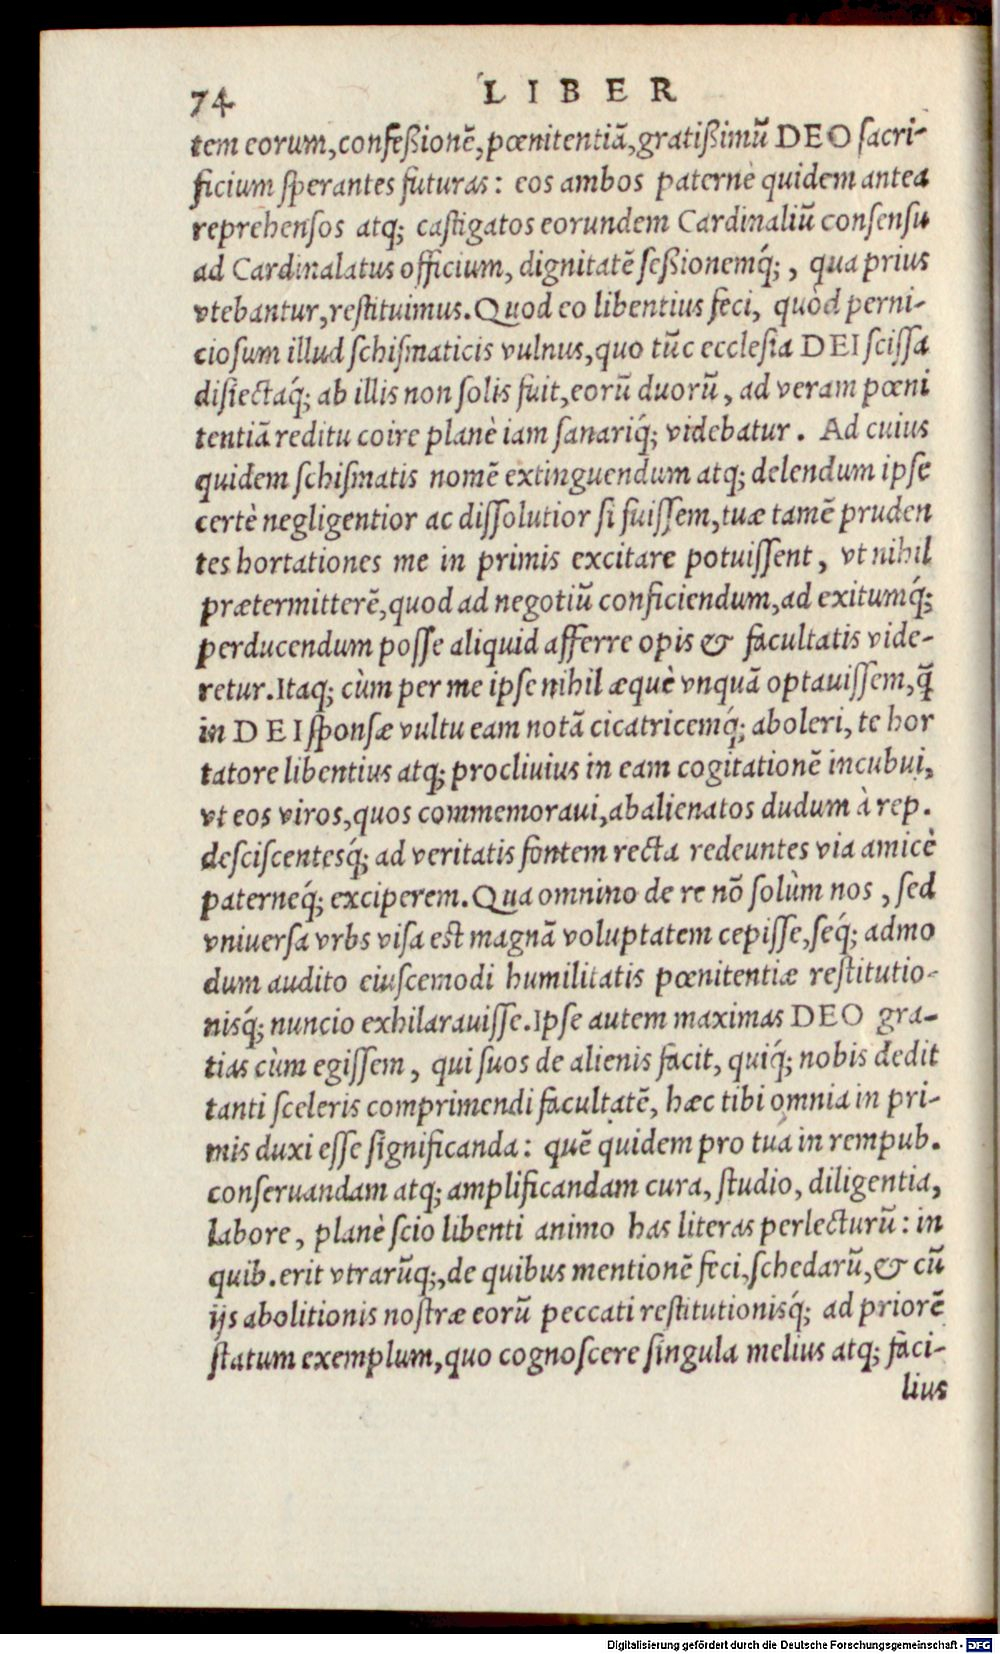 74 LIBER
tem eorum, confeßionē, pœnitentiā, gratißimū DEO sacri-
ficium sperantes futuras: eos ambos paternè quidem antea
reprehensos atq; castigatos eorundem Cardinaliū consensu
ad Cardinalatus officium, dignitatē seßionemq́;, qua prius
vtebantur, restituimus. Quod eo libentius feci, quòd perni-
ciosum illud schismaticis vulnus, quo tūc ecclesia DEI scissa
disiectaq́; ab illis non solis fuit, eorū duorū, ad veram pœni
tentiā reditu coire planè iam sanariq́; videbatur. Ad cuius
quidem schismatis nomē extinguendum atq; delendum ipse
certè negligentior ac dissolutior si fuissem, tuæ tamē pruden
tes hortationes me in primis excitare potuissent, vt nihil
prætermitterē, quod ad negotiū conficiendum, ad exitumq́;
perducendum posse aliquid afferre opis & facultatis vide-
retur. Itaq; cùm per me ipse nihil æquè vnquā optauissem, q̄
in DEI sponsæ vultu eam notā cicatricemq́; aboleri, te hor
tatore libentius atq; procliuius in eam cogitationē incubui,
vt eos viros, quos commemoraui, abalienatos dudum à rep.
desciscentesq́; ad veritatis fontem recta redeuntes via amicè
paterneq́; exciperem. Qua omnino de re nō solùm nos, sed
vniuersa vrbs visa est magnā voluptatem cepisse, seq́; admo
dum audito eiuscemodi humilitatis pœnitentiæ restitutio-
nisq́; nuncio exhilarauisse. Ipse autem maximas DEO gra-
tias cùm egissem, qui suos de alienis facit, quiq́; nobis dedit
tanti sceleris comprimendi facultatē, hæc tibi omnia in pri-
mis duxi esse significanda: quē quidem pro tua in rempub.
conseruandam atq; amplificandam cura, studio, diligentia,
labore, planè scio libenti animo has literas perlecturū: in
quib. erit vtrarūq;, de quibus mentionē feci, schedarū, & cū
ijs abolitionis nostræ eorū peccati restitutionisq́; ad priorē
statum exemplum, quo cognoscere singula melius atq; faci-
lius
Digitalisierung gefördert durch die Deutsche Forschungsgemeinschaft - DFG